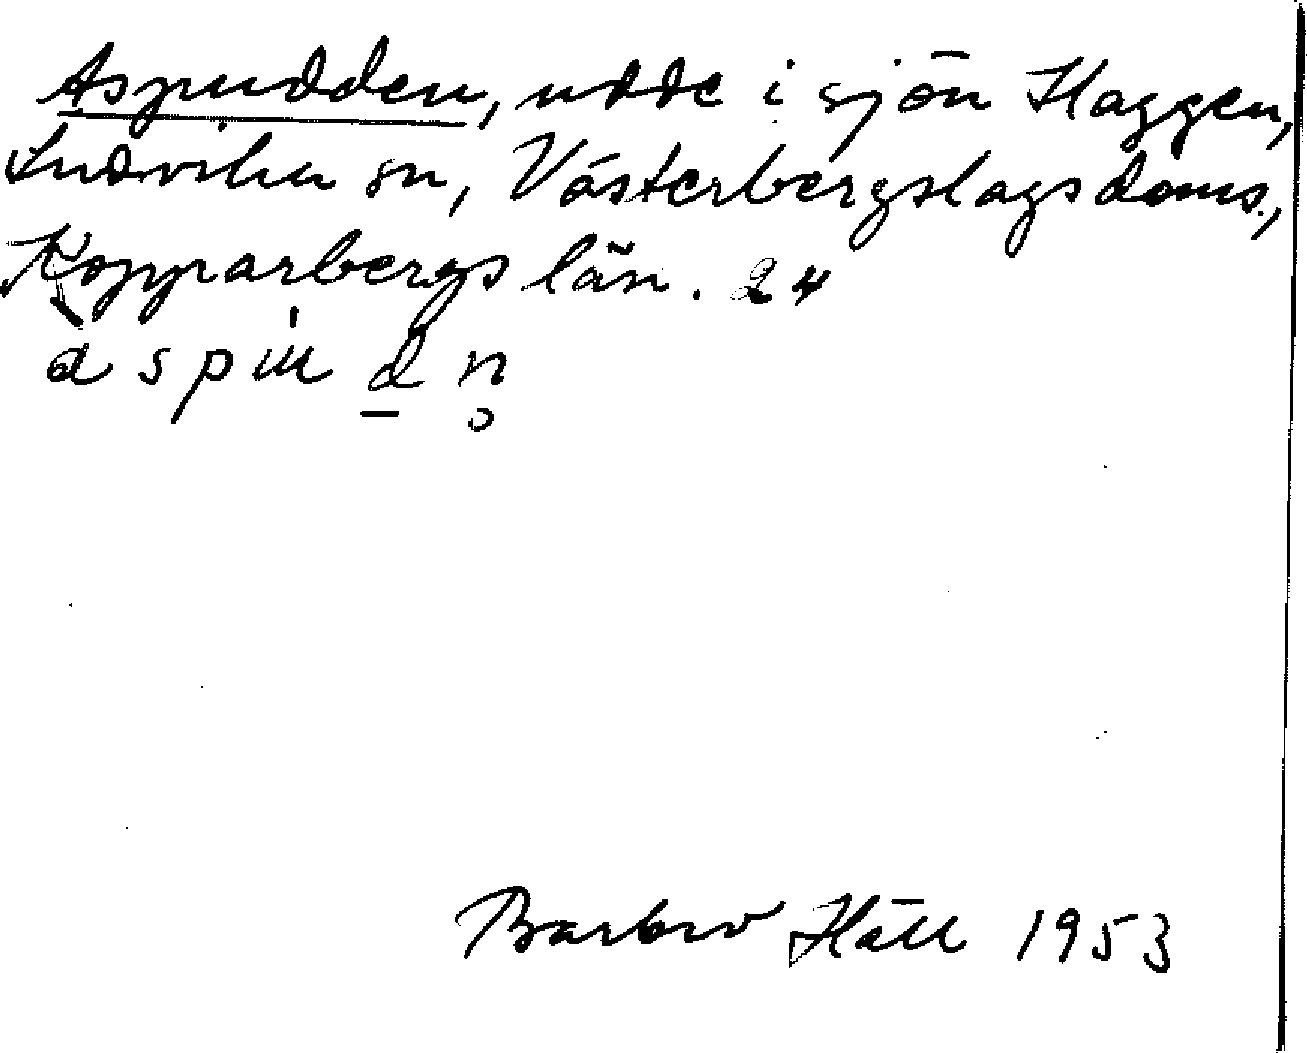 Aspudden, udde i sjön Haggen,
Ludvika sn, Västerbergslags doms.,
Kopparbergs län. 24
àspu̍d̲n̥
Barbro Häll 1953